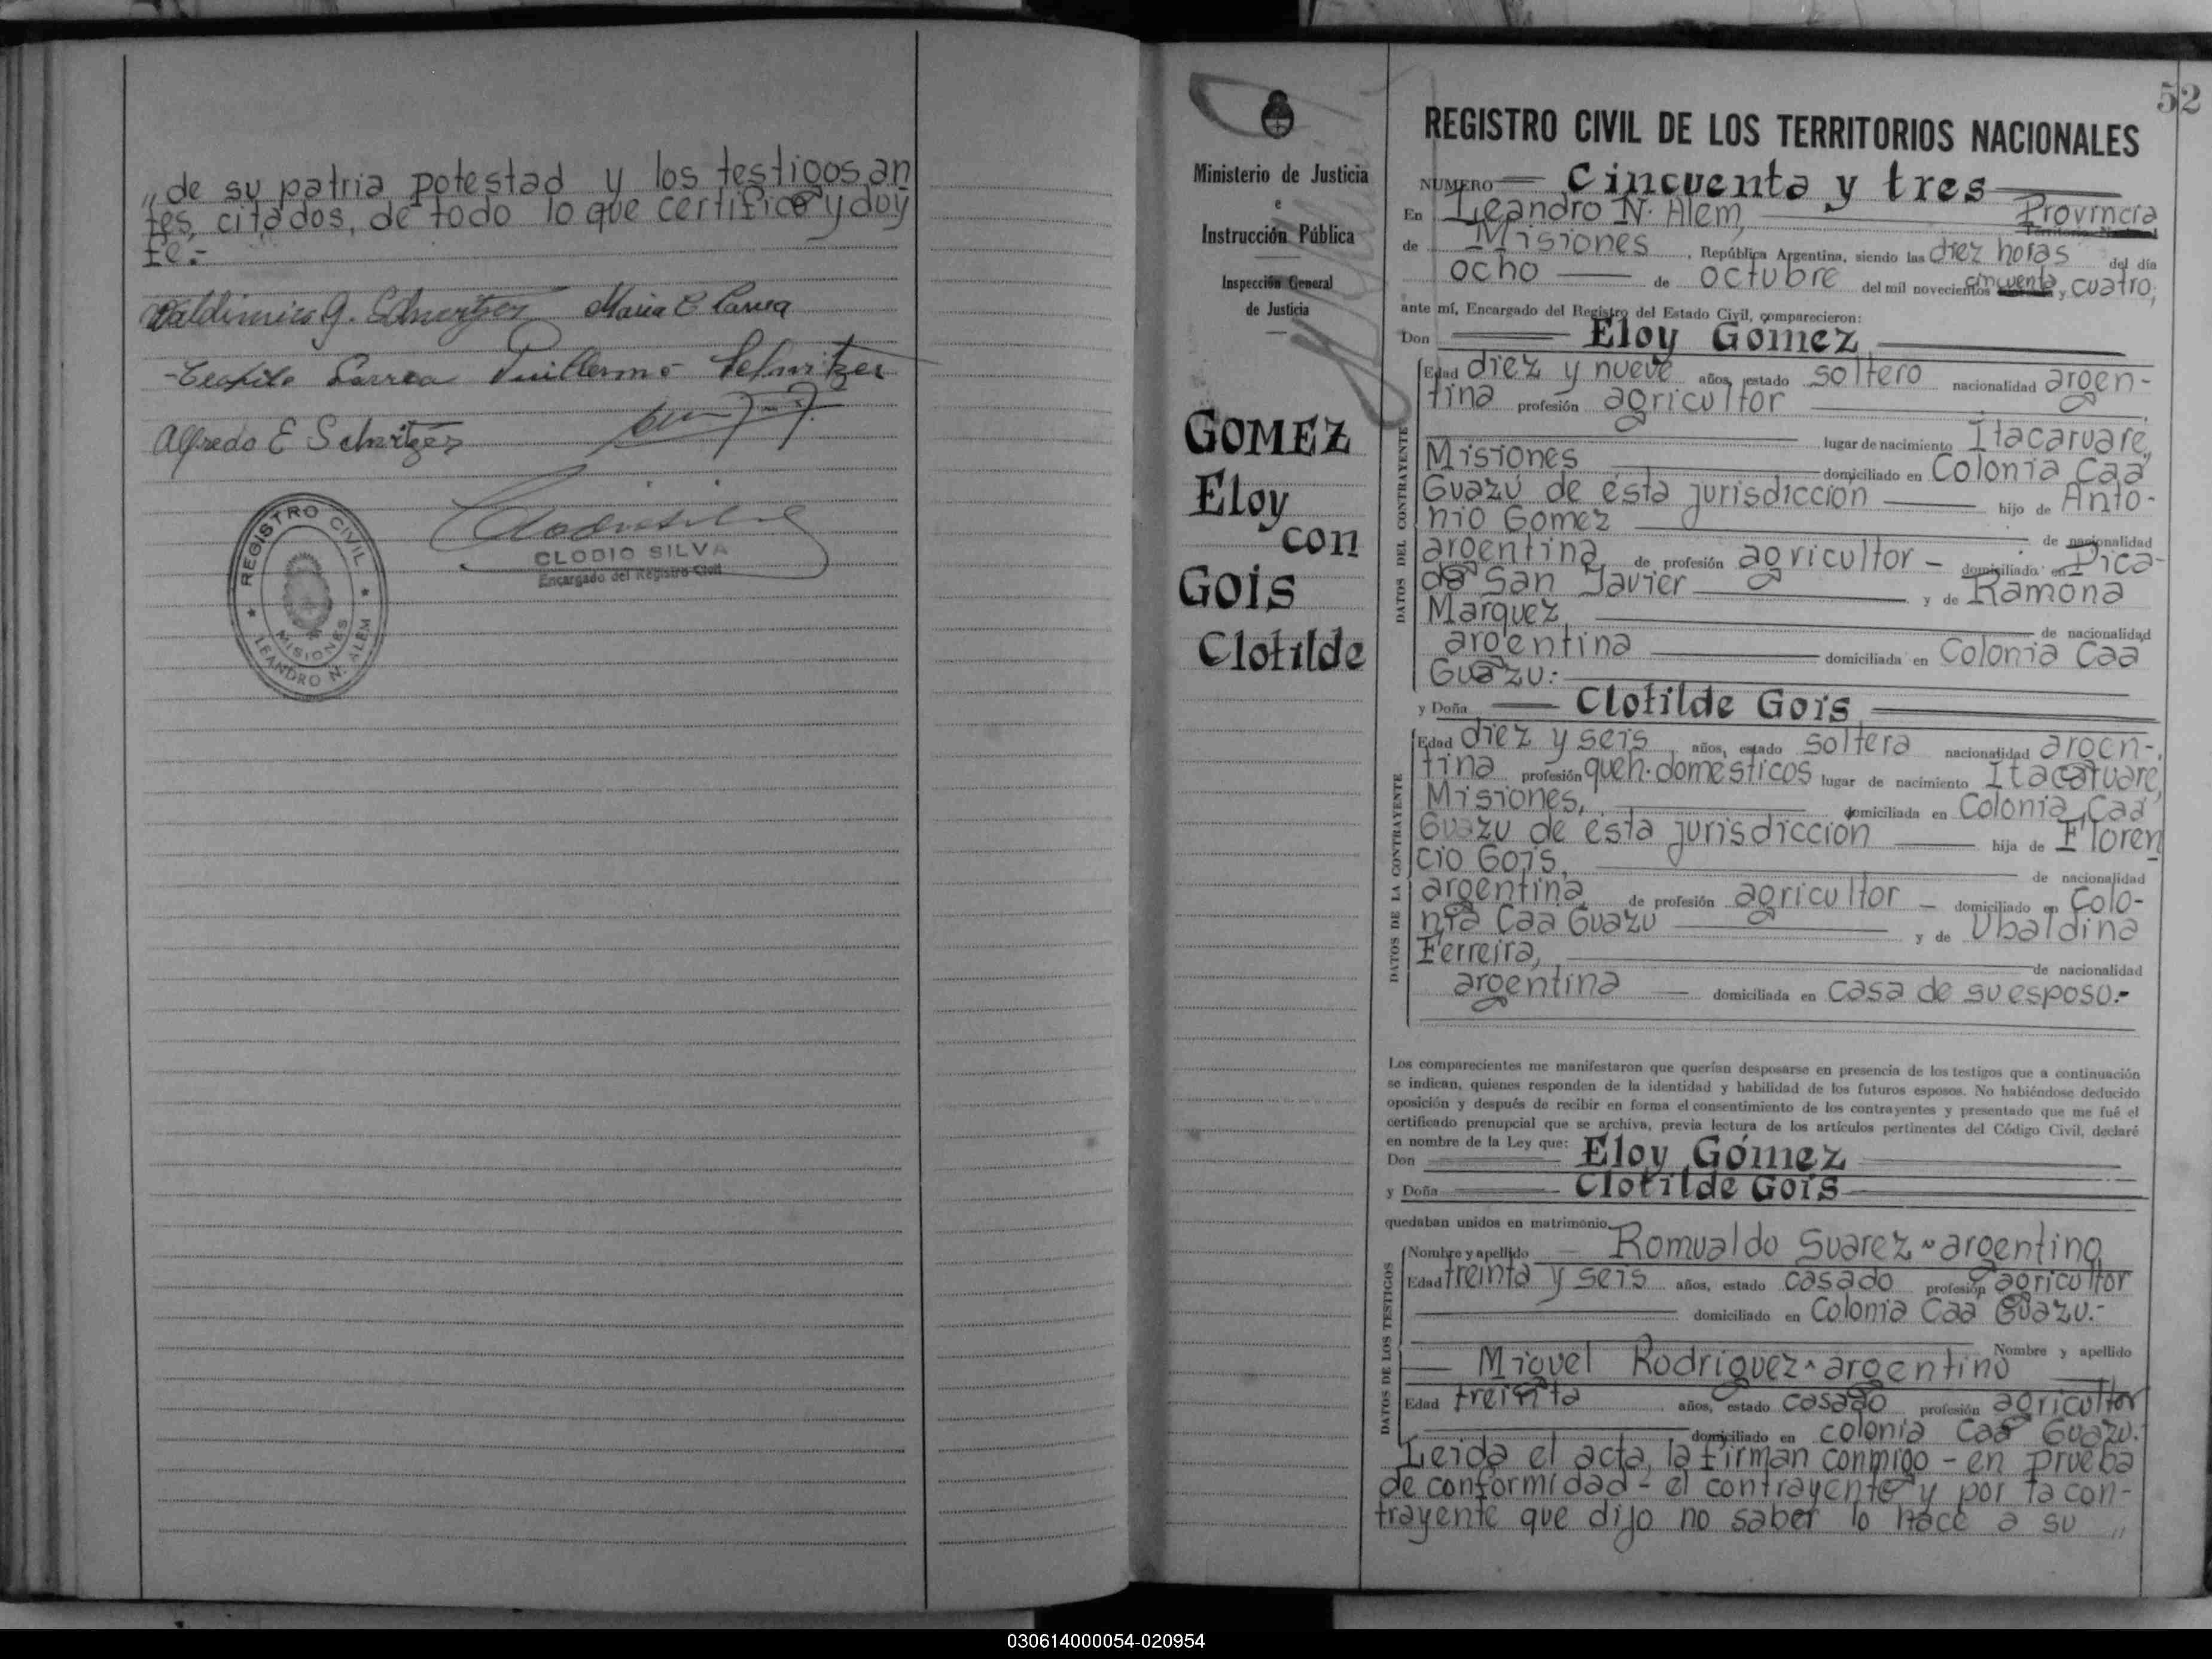 „de su patria potestad y los testigos an
tes, citados, de todo lo que certifico y doy
fe.-
G. Maria E Larrea
Teofilo Larrea Guillermo Schvitzer
Alfredo E Schvitzer
REGISTRO CIVIL
MISIONES
LEANDRO N. ALEM
CLODIO SILVA
Encargado del Registro Civil
52
Ministerio de Justicia
e
Instrucción Pública
Inspección General
de Justicia
GOMEZ
Eloy
con
GOIS
Clotilde
REGISTRO CIVIL DE LOS TERRITORIOS NACIONALES
NUMERO Cincuenta y tres
En Leandro N. Alem, Provincia
de Misiones, República Argentina, siendo las diez horas del día
ocho de octubre del mil novecientos cincuenta y cuatro,
ante mí, Encargado del Registro del Estado Civil, comparecieron:
Don Eloy Gómez
DATOS DEL CONTRAYENTE
Edad diez y nueve años, estado soltero nacionalidad argen-
tina profesión agricultor
lugar de nacimiento Itacaruare,
Misiones domiciliado en Colonia Caa
Guazú de ésta jurisdicción hijo de Anto-
nio Gomez
de nacionalidad
argentina de profesión agricultor - domiciliado en Pica-
da San Javier y de Ramona
Marquez
de nacionalidad
argentina domiciliada en Colonia Caa
Guazu.-
y Doña Clotilde Gois
DATOS DE LA CONTRAYENTE
Edad diez y seis años, estado soltera nacionalidad argen-
tina profesión queh. domésticos lugar de nacimiento Itacaruare,
Misiones, domiciliada en Colonia Caa
Guazu de ésta jurisdicción hija de Floren
cio Gois,
de nacionalidad
argentina, de profesión agricultor - domiciliado en Colo-
nia Caa Guazu y de Ubaldina
Ferreira,
de nacionalidad
argentina domiciliada en casa de su esposo.-
Los comparecientes me manifestaron que querían desposarse en presencia de los testigos que a continuación
se indican, quienes responden de la identidad y habilidad de los futuros esposos. No habiéndose deducido
oposición y después de recibir en forma el consentimiento de los contrayentes y presentado que me fué el
certificado prenupcial que se archiva, previa lectura de los artículos pertinentes del Código Civil, declaré
en nombre de la Ley que:
Don Eloy Gómez
y Doña Clotilde Gois
quedaban unidos en matrimonio.
DATOS DE LOS TESTIGOS
Nombre y apellido Romualdo Suarez - argentino
Edad treinta y seis años, estado casado profesión agricultor
domiciliado en Colonia Caa Guazu.-
Nombre y apellido
Miguel Rodriguez - argentino
Edad treinta años, estado casado profesión agricultor
domiciliado en colonia Caa Guazu.
Leida el acta, la firman conmigo - en prueba
de conformidad - el contrayente y por la con-
trayente que dijo no saber lo hace a su „
030614000054-020954